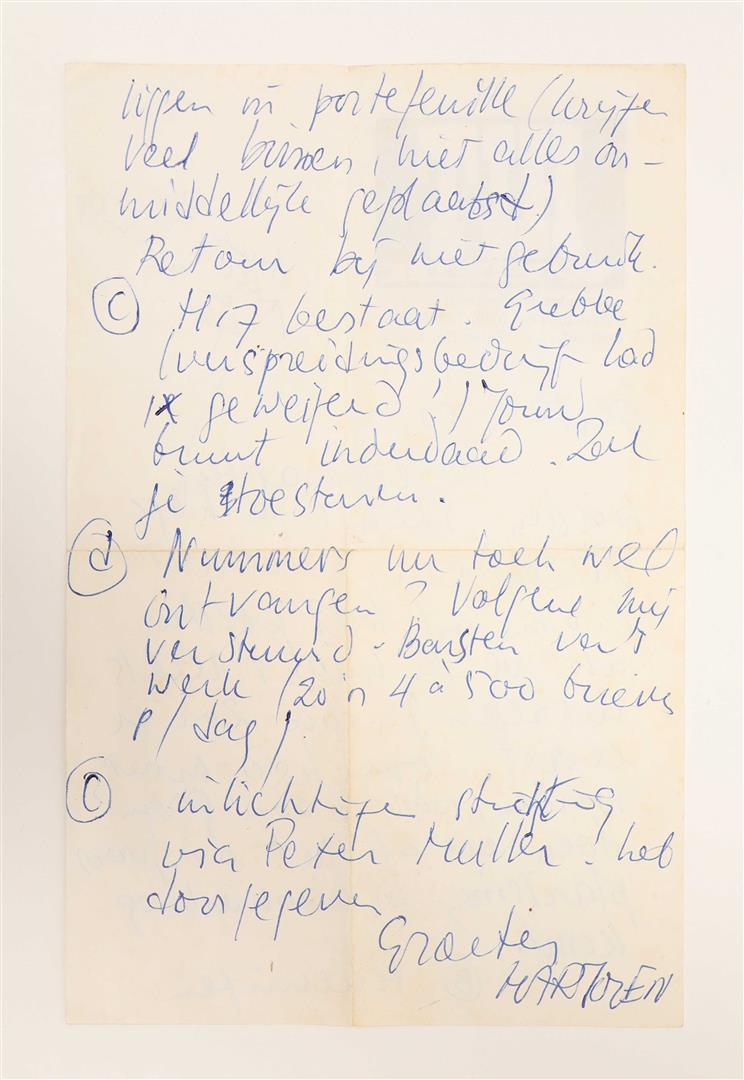 liggen in portefeuille (krijgen
veel binnen, niet alles on-
middellijk geplaatst)
Retour bij niet gebruik.
(c) Nr 7 bestaat. Grebbe
(verspreidingsbedrijf had
geweigerd!) Jouw
komt inderdaad. Zal
je toesturen.
(d) Nummers nu toch wel
ontvangen? Volgens mij
verstuurd - Barsten van 't
werk (zo'n 4 à 500 brieven
p/dag)
inlichtingen stichting
via Peter Muller. heb
doorgegeven
Groeten